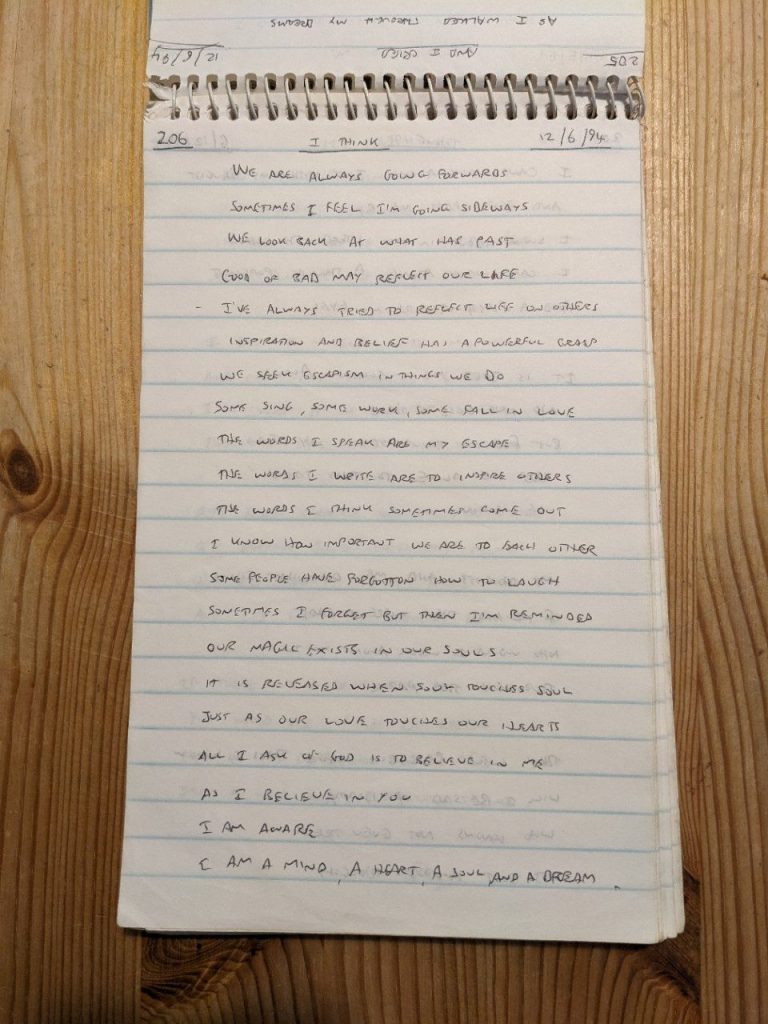 AS I WALKED THROUGH MY DREAMS
205 AND I CRIED 12/6/94
206 I THINK 12/6/94
WE ARE ALWAYS GOING FORWARDS
SOMETIMES I FEEL I'M GOING SIDEWAYS
WE LOOK BACK AT WHAT HAS PAST
GOOD OR BAD MAY REFLECT OUR LIFE
- I'VE ALWAYS TRIED TO REFLECT LIFE ON OTHERS
INSPIRATION AND BELIEF HAS A POWERFUL GRASP
WE SEEK ESCAPISM IN THINGS WE DO
SOME SING, SOME WORK, SOME FALL IN LOVE
THE WORDS I SPEAK ARE MY ESCAPE
THE WORDS I WRITE ARE TO INSPIRE OTHERS
THE WORDS I THINK SOMETIMES COME OUT
I KNOW HOW IMPORTANT WE ARE TO EACH OTHER
SOME PEOPLE HAVE FORGOTTON HOW TO LAUGH
SOMETIMES I FORGET BUT THEN I'M REMINDED
OUR MAGIC EXISTS IN OUR SOULS
IT IS RELEASED WHEN SOUL TOUCHES SOUL
JUST AS OUR LOVE TOUCHES OUR HEARTS
ALL I ASK OF GOD IS TO BELIEVE IN ME
AS I BELIEVE IN YOU
I AM AWARE
I AM A MIND, A HEART, A SOUL, AND A DREAM.